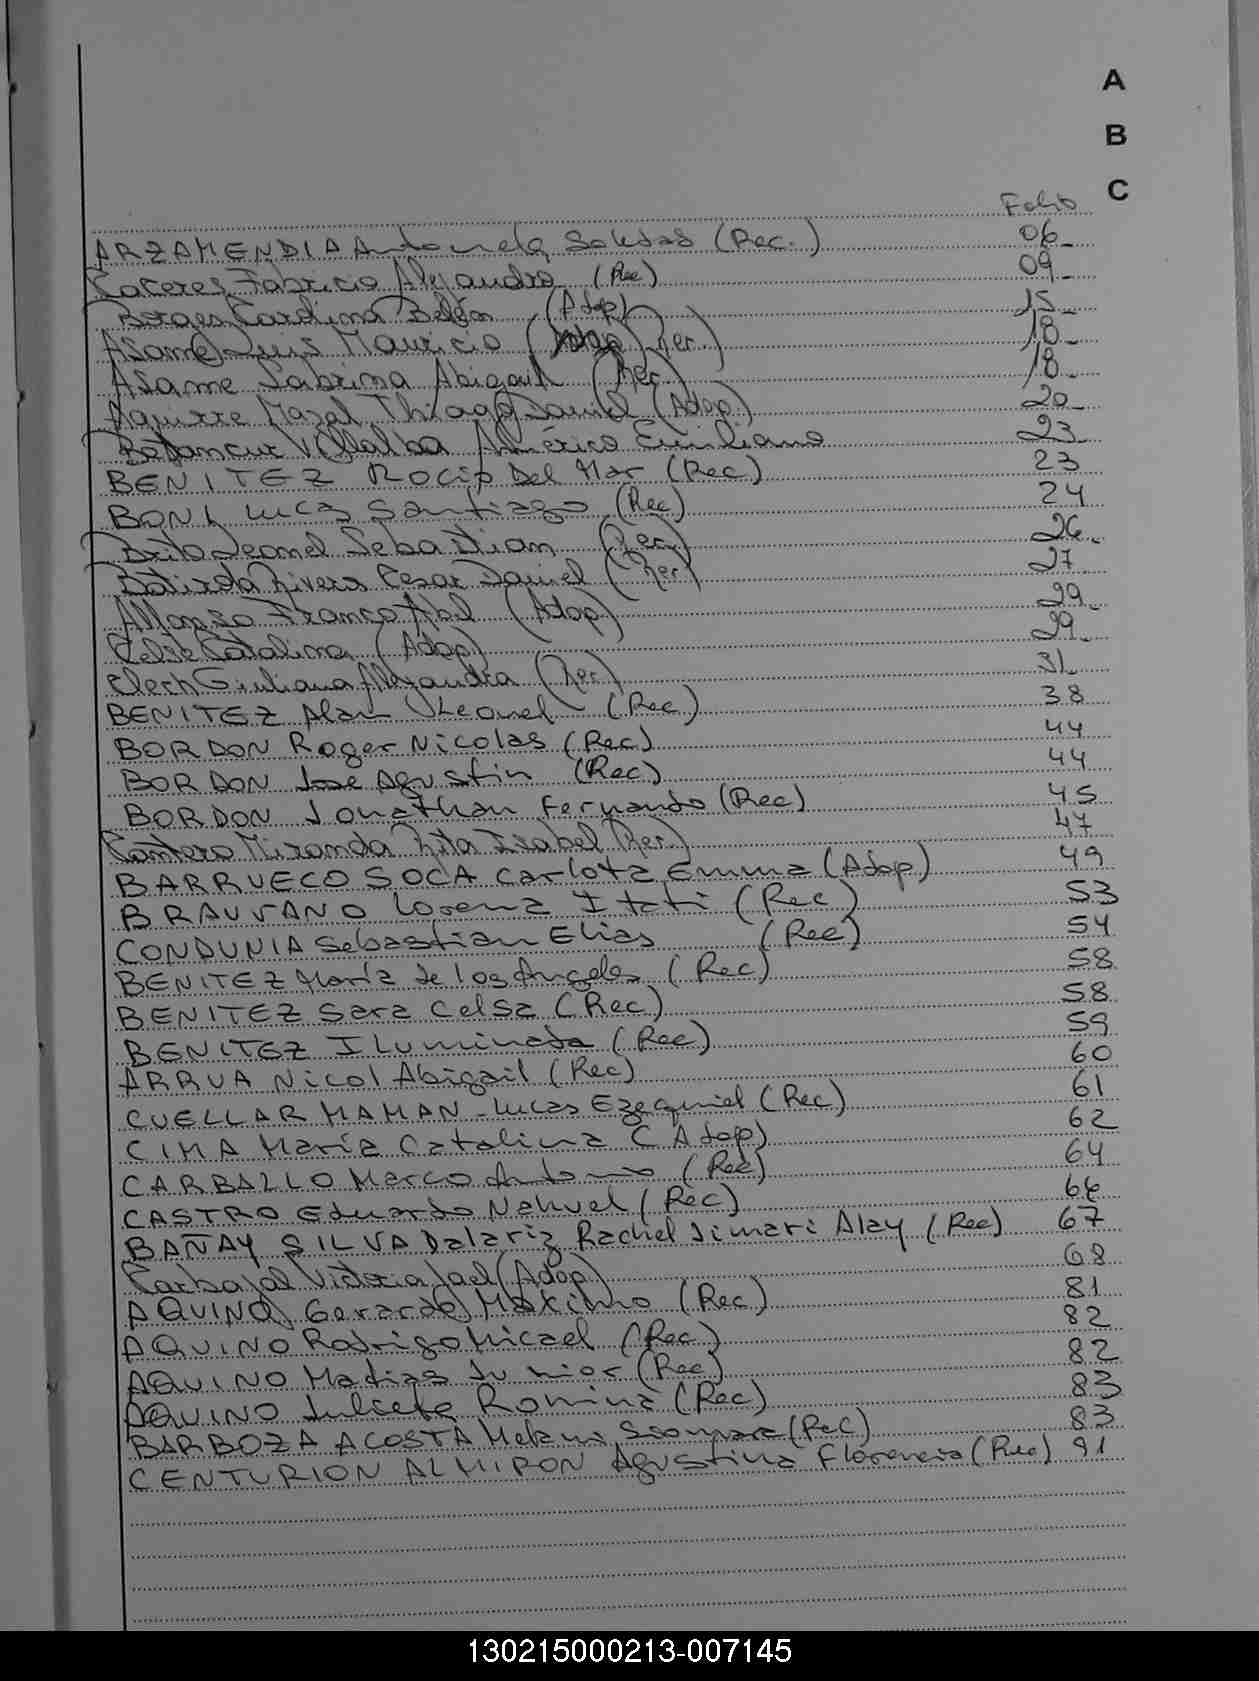 A
B
C
Folio
ARZAMENDIA Antonela Soledad (Rec.) 06
Caceres Fabricio Alejandro (Rec) 09
Borges Carolina Belén (Adop) 15
Asame Luis Mauricio (Rec.) 18
Asame Sabrina Abigail (Rec.) 18
Aguirre Mazal Thiago Daniel (Adop.) 20
Betancur Villalba Américo Emiliano 23
BENITEZ Rocio Del Mar (Rec) 23
BONI Lucas Santiago (Rec) 24
Brito Leonel Sebastian (Rec) 26
Rivera Cesar Daniel (Rec) 27
Alfonso Franco (Adop) 29
Catalina (Adop) 29
Giuliana Alejandra (Rec) 31
BENITEZ Alan Leonel (Rec) 38
BORDON Roger Nicolas (Rec) 44
BORDON Jose Agustin (Rec) 44
BORDON Jonathan Fernando (Rec) 45
Cantero Miranda Rita Isabel (Rec.) 47
BARRUECO SOCA Carlota Emma (Adop) 49
Lorena Itati (Rec) 53
CONDUNIA Sebastian Elias (Rec) 54
BENITEZ María de los Angeles (Rec) 58
BENITEZ Sara Celsa (Rec) 58
BENITEZ Iluminada (Rec) 59
ARRUA Nicol Abigail (Rec) 60
CUELLAR MAMANI Lucas Ezequiel (Rec) 61
CIMA María Catalina (Adop) 62
CARBALLO Marco Antonio (Rec) 64
CASTRO Eduardo Nahuel (Rec) 66
BAÑAY SILVA Dalariz Rachel Jimari Alay (Rec) 67
Carbajal Victoria Jael (Adop) 68
AQUINO Gerardo Maximo (Rec) 81
AQUINO Rodrigo Micael (Rec) 82
AQUINO Matias Junior (Rec) 82
AQUINO Julieta Romina (Rec) 83
BARBOZA ACOSTA Melani (Rec) 83
CENTURION ALMIRON Agustina Florencia (Rec) 91
130215000213-007145